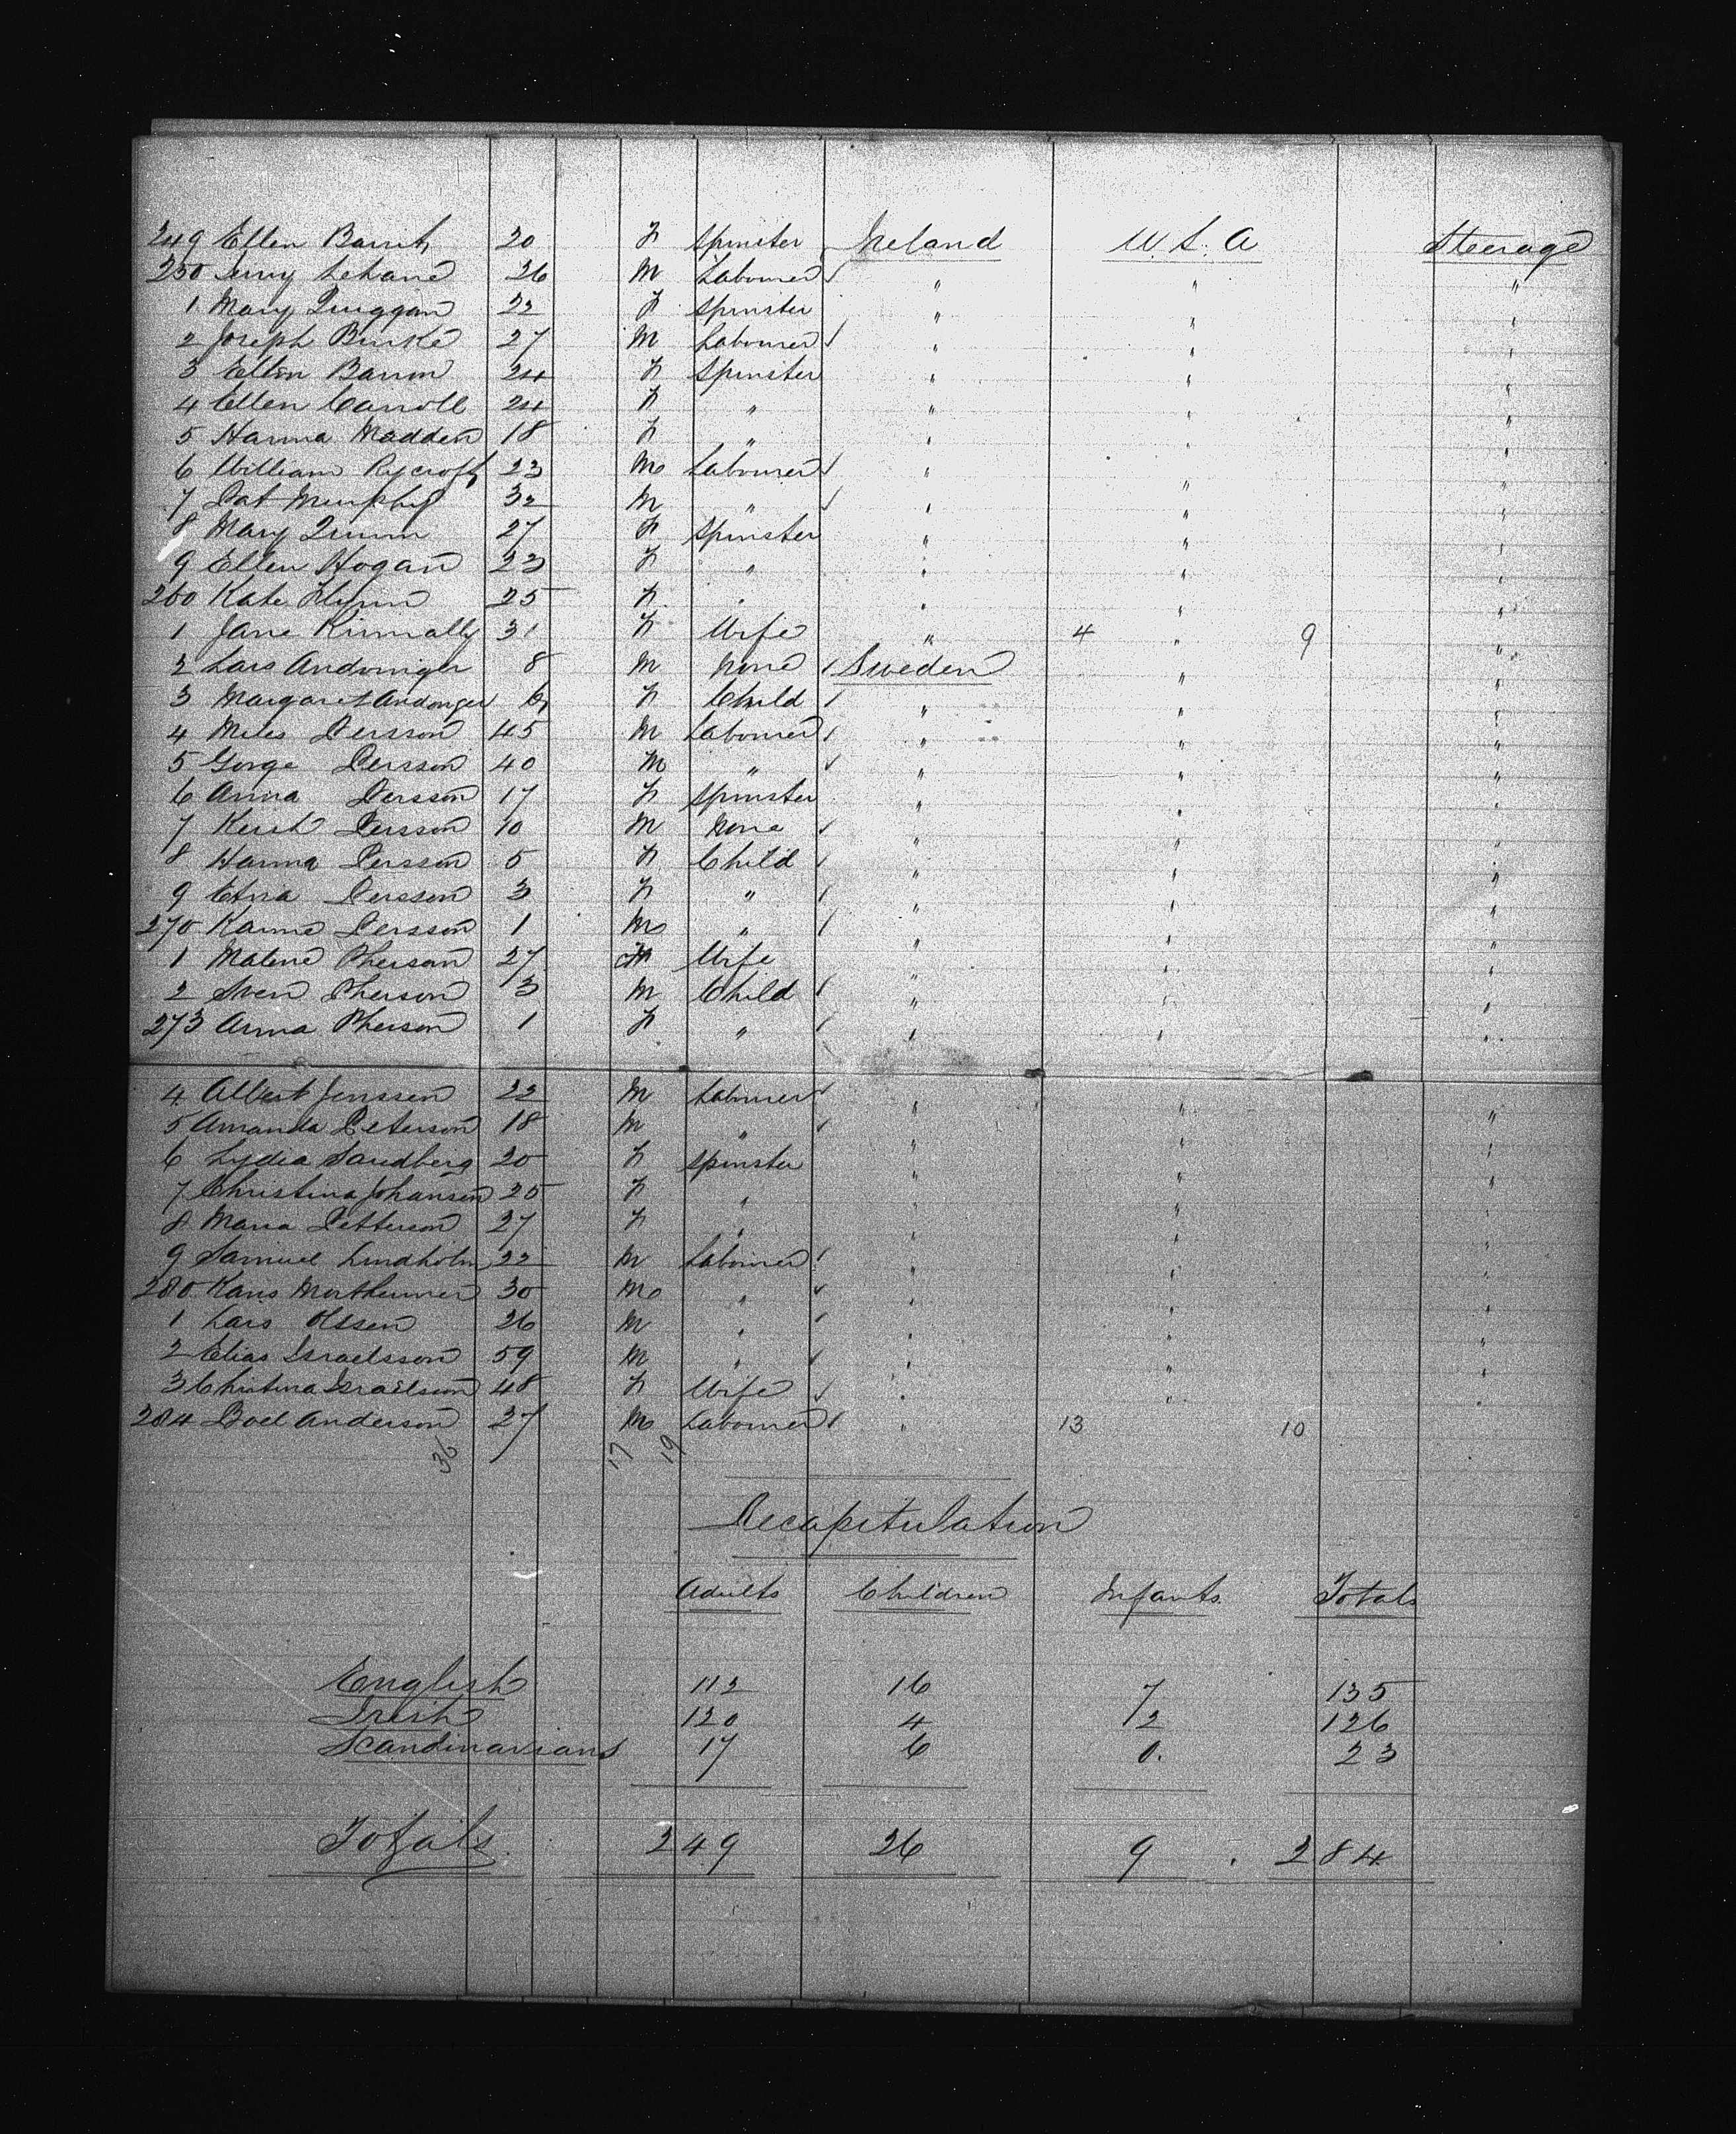 249 Ellen Barrit 20 F Spinster Ireland U.S.A Steerage
250 Jerry Lehane 26 M Labourer " " "
1 Mary Duggan 22 F Spinster " " "
2 Joseph Burke 27 M Labourer " " "
3 Ellen Barron 24 F Spinster " " "
4 Ellen Carroll 24 F " " " "
5 Hanna Madden 18 F " " " "
6 William Rycroft 23 M Labourer " " "
7 Pat Murphy 32 M " " " "
8 Mary Quinn 27 F Spinster " " "
9 Ellen Hogan 23 F " " " "
260 Kate Flynn 25 F " " " "
1 Jane Kinnally 31 F Wife " 4 " 9 "
2 Lars 8 M None Sweden " "
3 Margaret 6 F Child " " "
4 Persson 45 M Labourer " " "
5 Gorge Persson 40 M " " " "
6 Anna Persson 17 F Spinster " " "
7 Persson 10 M None " " "
8 Hanna Persson 5 F Child " " "
9 Elna Persson 3 F " " " "
270 Karina Persson 1 M " " " "
1 Malene Pherson 27 F Wife " " "
2 Sven Pherson 3 M Child " " "
273 Anna Pherson 1 F " " " "
4 Albert Jenssen 22 M Labourer " " "
5 Amanda Peterson 18 M " " " "
6 Lydia Sandberg 20 F Spinster " " "
7 Christina Johansen 25 F " " " "
8 Maria Petterson 27 F " " " "
9 Samuel Lindholm 22 M Labourer " " "
280 30 M " " " "
1 Lars Olssen 26 M " " " "
2 Elias Israelsson 59 M " " " "
3 Christina Israelsson 48 F Wife " " "
284 Boel Anderson 27 M Labourer " 13 10
36 17 19
Recapitulation
Adults Children Infants Totals
English 112 16 7 135
Irish 120 4 2 126
Scandinavians 17 6 0. 23
Totals. 249 26 9 . 284